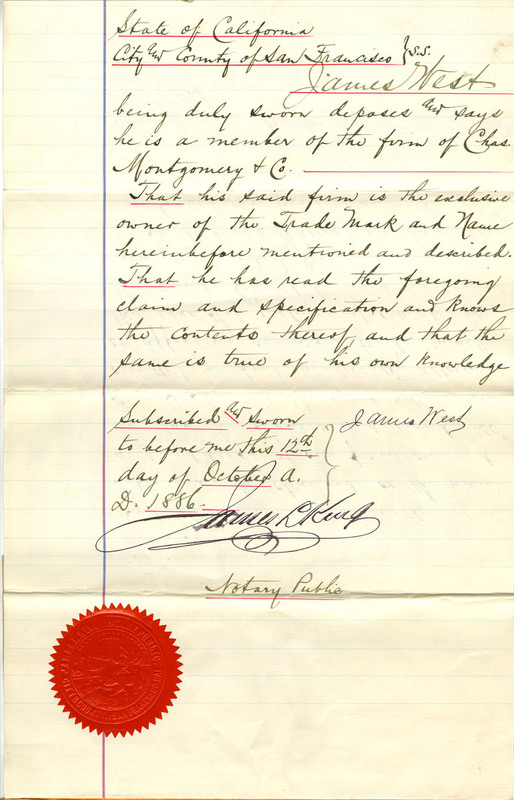 State of California
City and County of San Francisco } S.S.
James West
being duly sworn deposes and says
he is a member of the firm of Chas.
Montgomery & Co.
That his said firm is the exclusive
owner of the Trade Mark and Name
hereinbefore mentioned and described.
That he has read the foregoing
claim and specification and knows
the contents thereof, and that the
same is true of his own knowledge
Subscribed and sworn
to before me this 12th
day of October A.
D. 1886.
James West
James L. King
Notary Public